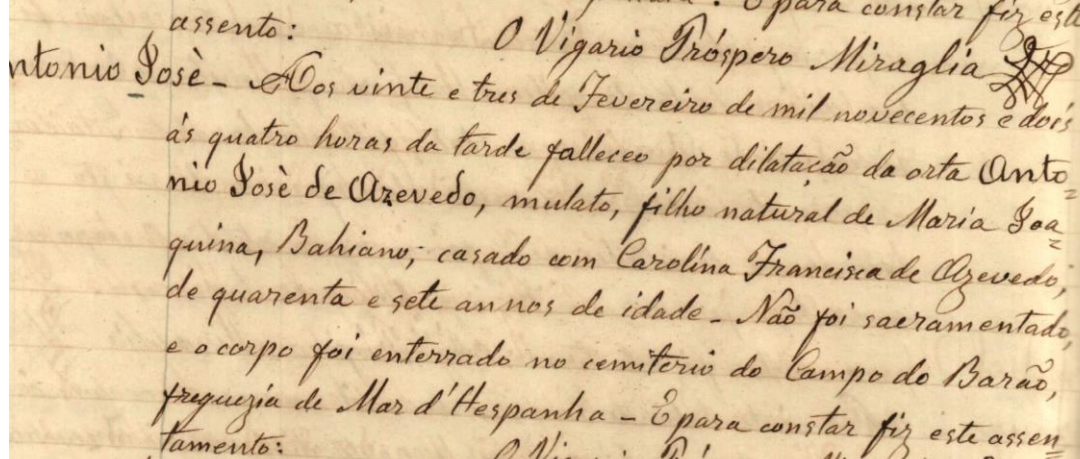 para constar fiz este
assento: O Vigario Próspero Miraglia
ntonio Josè - Aos vinte e tres de Fevereiro de mil novecentos e dois
ás quatro horas da tarde falleceo por dilatacão da orta Anto=
nio Josè de Azevedo, mulato, filho natural de Maria Joa=
quina, Bahiano, casado com Carolina Francisca de Azevedo,
de quarenta e sete annos de idade - Não foi sacramentado,
e o corpo foi enterrado no cemiterio do Campo do Barão,
freguezia de Mar d'Hespanha - E para constar fiz este assen=
tamento: O Vigario